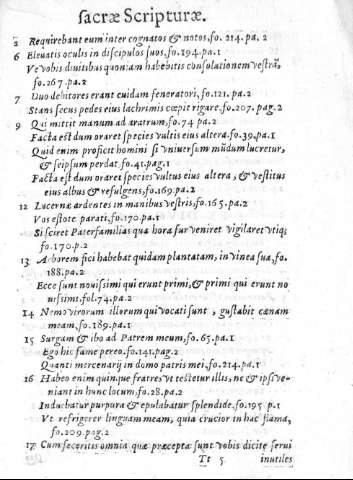 sacræ Scripturæ.
2 Requirebant eum inter cognatos & notos, fo. 214. pa. 2
6 Eleuatis oculis in discipulos suos, fo. 194. pa. 1
Ve vobis diuitibus quoniam habebitis consolationem vestrã,
fo. 267. pa. 2
7 Duo debitores erant cuidam feneratori, fo. 121. pa. 2
Stans secus pedes eius lachrimis cœpit rigare, fo. 207. pag. 2
9 Qui mittit manum ad aratrum, fo. 74 pa. 2
Facta est dum oraret species vultus eius altera. fo. 39, pa. 1
Quid enim proficit homini si vniuersum mũdum lucretur,
& seipsum perdat. fo. 41. pag. 1
Facta est dum oraret species vultus eius altera, & vestitus
eius albus & refulgens, fo. 169. pa. 2
12 Lucernæ ardentes in manibus vestris, fo. 165. pa. 2
Vos estote parati, fo. 170. pa. 1
Si sciret Paterfamilias qua hora fur veniret vigilaret vtiq;
fo. 170. p. 2
13 Arborem fici habebat quidam plantatam, in vinea sua, fo.
188. pa. 2
Ecce sunt nouissimi qui erunt primi, & primi qui erunt no
uissimi. fol. 74, pa. 2
14 Nemo virorum illorum qui vocati sunt, gustabit cœnam
meam, fo. 189. pa. 1
15 Surgam & ibo ad Patrem meum, fo. 65. pa. 1
Ego hic fame pereo. fo. 141. pag. 2
Quanti mercenarij in domo patris mei, fo. 214. pa. 1
16 Habeo enim quinque fratres vt testetur illis, ne & ipsi ve-
niant in hunc locum, fo. 28. pa. 2
Induebatur purpura & epulabatur splendide. fo. 195 p. 1
Vt refrigerer linguam meam, quia crucior in hac flama,
fo. 209. pag. 2
17 Cum feceritis omnia quæ præcepta sunt vobis dicite serui
Tt 5. inutiles